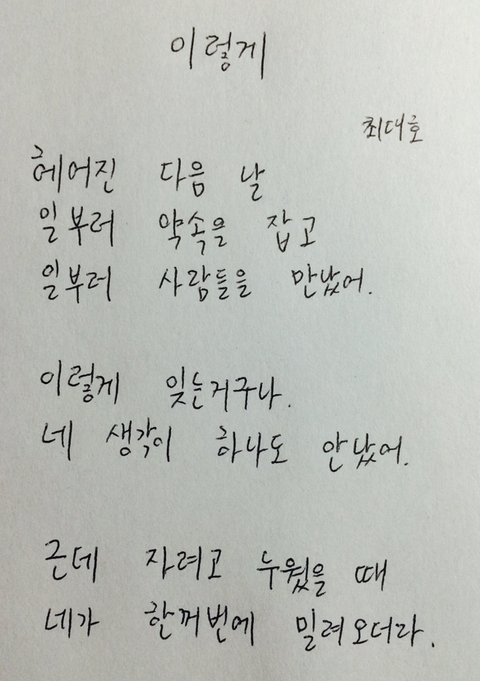 이렇게
최대호
헤어진 다음 날
일부러 약속을 잡고
일부러 사람들을 만났어.
이렇게 잊는거구나.
네 생각이 하나도 안났어.
근데 자려고 누웠을 때
네가 한꺼번에 밀려오더라.